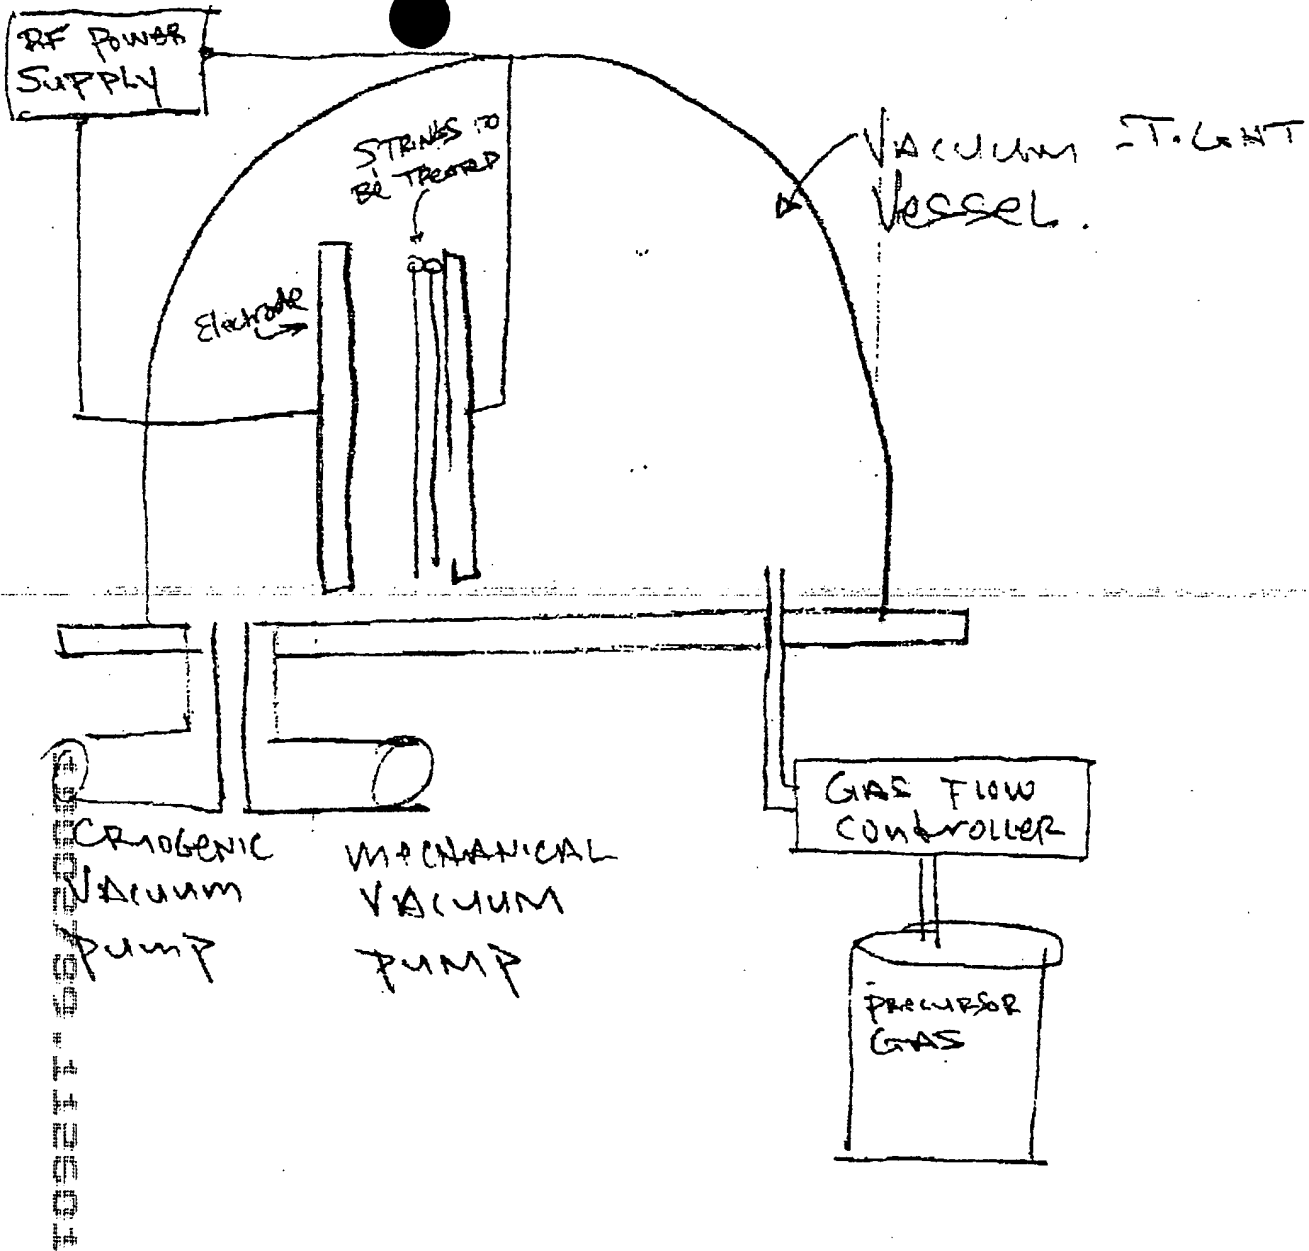 RF POWER
SUPPLY
STRINGS TO
BE TREATED
VACUUM-TIGHT
VESSEL.
Electrode
CRIOGENIC
VACUUM
PUMP
MECHANICAL
VACUUM
PUMP
GAS FLOW
CONTROLLER
PRECURSOR
GAS